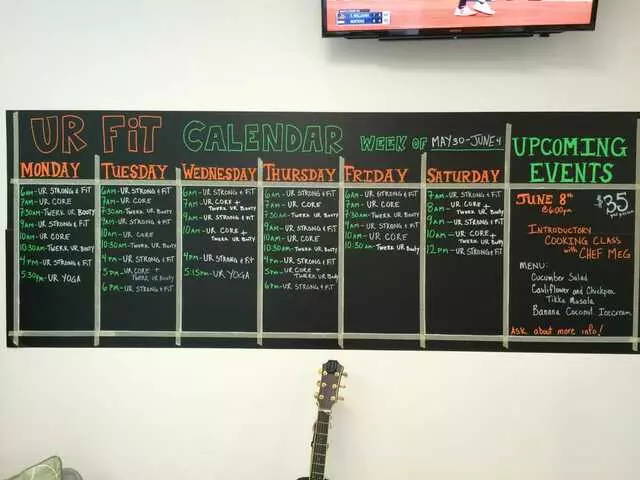 S. WILLIAMS
UR FiT CALENDAR WEEK OF MAY 30 - JUNE 4
MONDAY
6AM - UR STRONG & FiT
7AM - UR CORE
7:30AM - TWERK UR BOOTY
9AM - UR STRONG & FiT
10AM - UR CORE
10:30AM - TWERK UR BOOTY
4PM - UR STRONG & FiT
5:30PM - UR YOGA
TUESDAY
6AM - UR STRONG & FiT
7AM - UR CORE
7:30AM - TWERK UR BOOTY
9AM - UR STRONG & FiT
10AM - UR CORE
10:30AM - TWERK UR BOOTY
4PM - UR STRONG & FiT
5PM - UR CORE +
TWERK UR BOOTY
6PM - UR STRONG & FiT
WEDNESDAY
6AM - UR STRONG & FiT
7AM - UR CORE +
TWERK UR BOOTY
9AM - UR STRONG & FiT
10AM - UR CORE +
TWERK UR BOOTY
4PM - UR STRONG & FiT
5:15PM - UR YOGA
THURSDAY
6AM - UR STRONG & FiT
7AM - UR CORE
7:30AM - TWERK UR BOOTY
9AM - UR STRONG & FiT
10AM - UR CORE
10:30AM - TWERK UR BOOTY
4PM - UR STRONG & FiT
5PM - UR CORE +
TWERK UR BOOTY
6PM - UR STRONG & FiT
FRIDAY
6AM - UR STRONG & FiT
7AM - UR CORE
7:30AM - TWERK UR BOOTY
9AM - UR STRONG & FiT
10AM - UR CORE
10:30AM - TWERK UR BOOTY
SATURDAY
7AM - UR STRONG & FiT
8AM - UR CORE +
TWERK UR BOOTY
9AM - UR STRONG & FiT
10AM - UR CORE +
TWERK UR BOOTY
12PM - UR STRONG & FiT
UPCOMING
EVENTS
JUNE 8TH
@ 6:00pm
$35
per person
INTRODUCTORY
COOKING CLASS
with CHEF MEG
MENU:
Cucumber Salad
Cauliflower and Chickpea
Tikka Masala
Banana Coconut Icecream
Ask about more info!